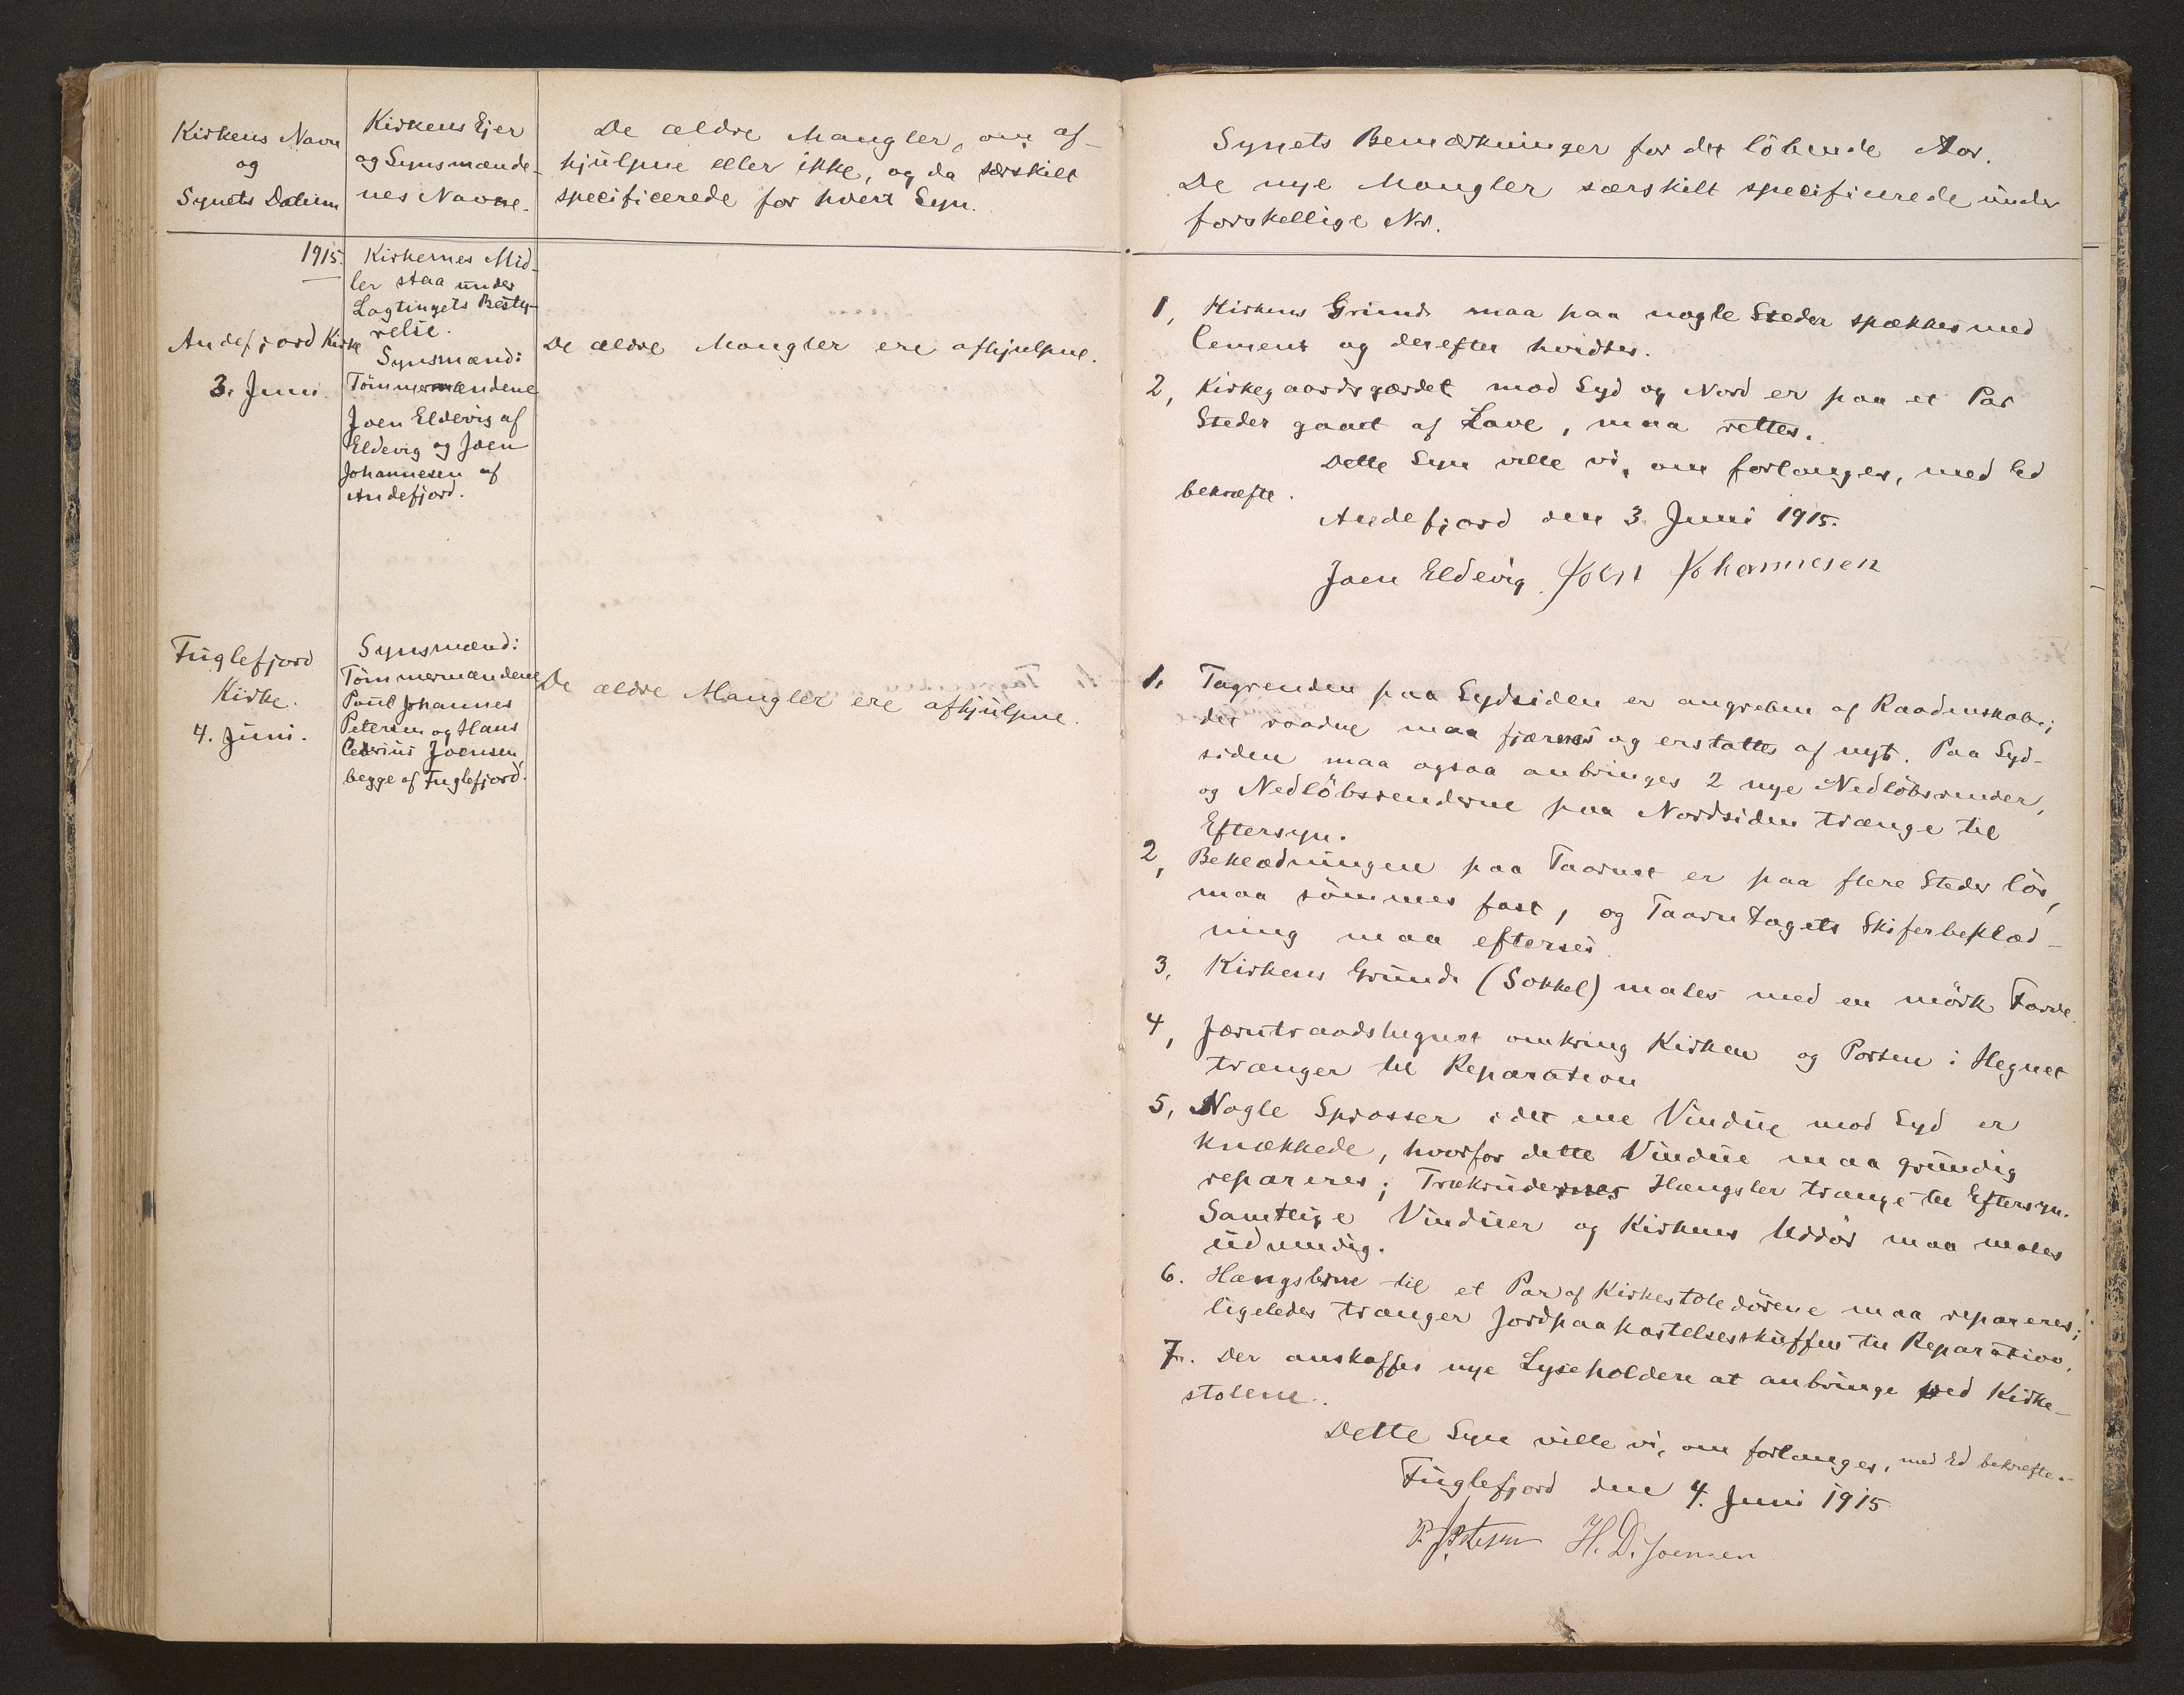 Kirkens Navn
og
Synets Datum
Kirkens Ejer
og Synsmænde-
nes Navne.
De ældre Mangler, om af-
hjülpne eller ikke, og da særskilt
specificerede for hvert Syn.
1915.
Kirkernes Mid-
ler staa ünder
Lagtingets Besty-
relse.
Andefjord Kirke
3. Juni.
Synsmænd:
Tömmermændene
Joen Eldevig af
Eldevig og Joen
Johannesen af
Andefjord.
De ældre Mangler ere afhjulpne.
Füglefjord
Kirke.
4. Jüni.
Synsmænd:
Tömmermændene
Poül Johannes
Petersen og Hans
Joensen,
begge af Fuglefjord.
De ældre Mangler ere afhjülpne.
Synets Bemærkninger for det löbende Aar.
De nye Mangler særskilt specificerede ünder
forskellige Nr.
1, Kirkens Grund maa paa nogle Steder spækkes med
Cement og derefter hvidtes.
2, Kirkegaardsgærdet mod Syd og Nord er paa et Par
Steder gaaet af Lave, maa rettes.
Dette Syn ville vi, om forlanges, med Ed
bekræfte.
Andefjord den 3. Juni 1915.
Joen Eldevig Joen Johannesen
1, Tagrenden paa Sydsiden er angreben af Raadenskab;
det raadne maa fjærnes og erstattes af nyt. Paa Syd-
siden maa ogsaa anbringes 2 nye Nedlöbsrender,
og Nedlöbsrenderne paa Nordsiden trænge til
Eftersyn.
2, Beklædningen paa Taarnet er paa flere Steder lös,
maa sömmes fast, og Taarntagets Skiferbeklæd-
ning maa efterses
3, Kirkens Gründ (Sokkel) males med en mörk Farve.
4, Jærntraadshegnet omkring Kirken og Porten i Hegnet
trænger til Reparation
5, Nogle Sprosser i det ene Vindüe mod Syd er
knækkede, hvorfor dette Vindüe maa gründig
repareres; Trækrüdernes Hængsler trænge til Eftersyn.
Samtlige Vindüer og Kirkens Uddör maa males
üdvendig.
6. Hængslerne til et Par af Kirkestoledörene maa repareres;
ligeledes trænger Jordpaakastelsesskuffen til Reparation.
7. Der anskaffes nye Lyseholdere at anbringe ved Kirke-
stolene.
Dette Syn ville vi, om forlanges, med Ed bekræfte.
Füglefjord den 4. Juni 1915
P. J. Petersen H. D. Joensen